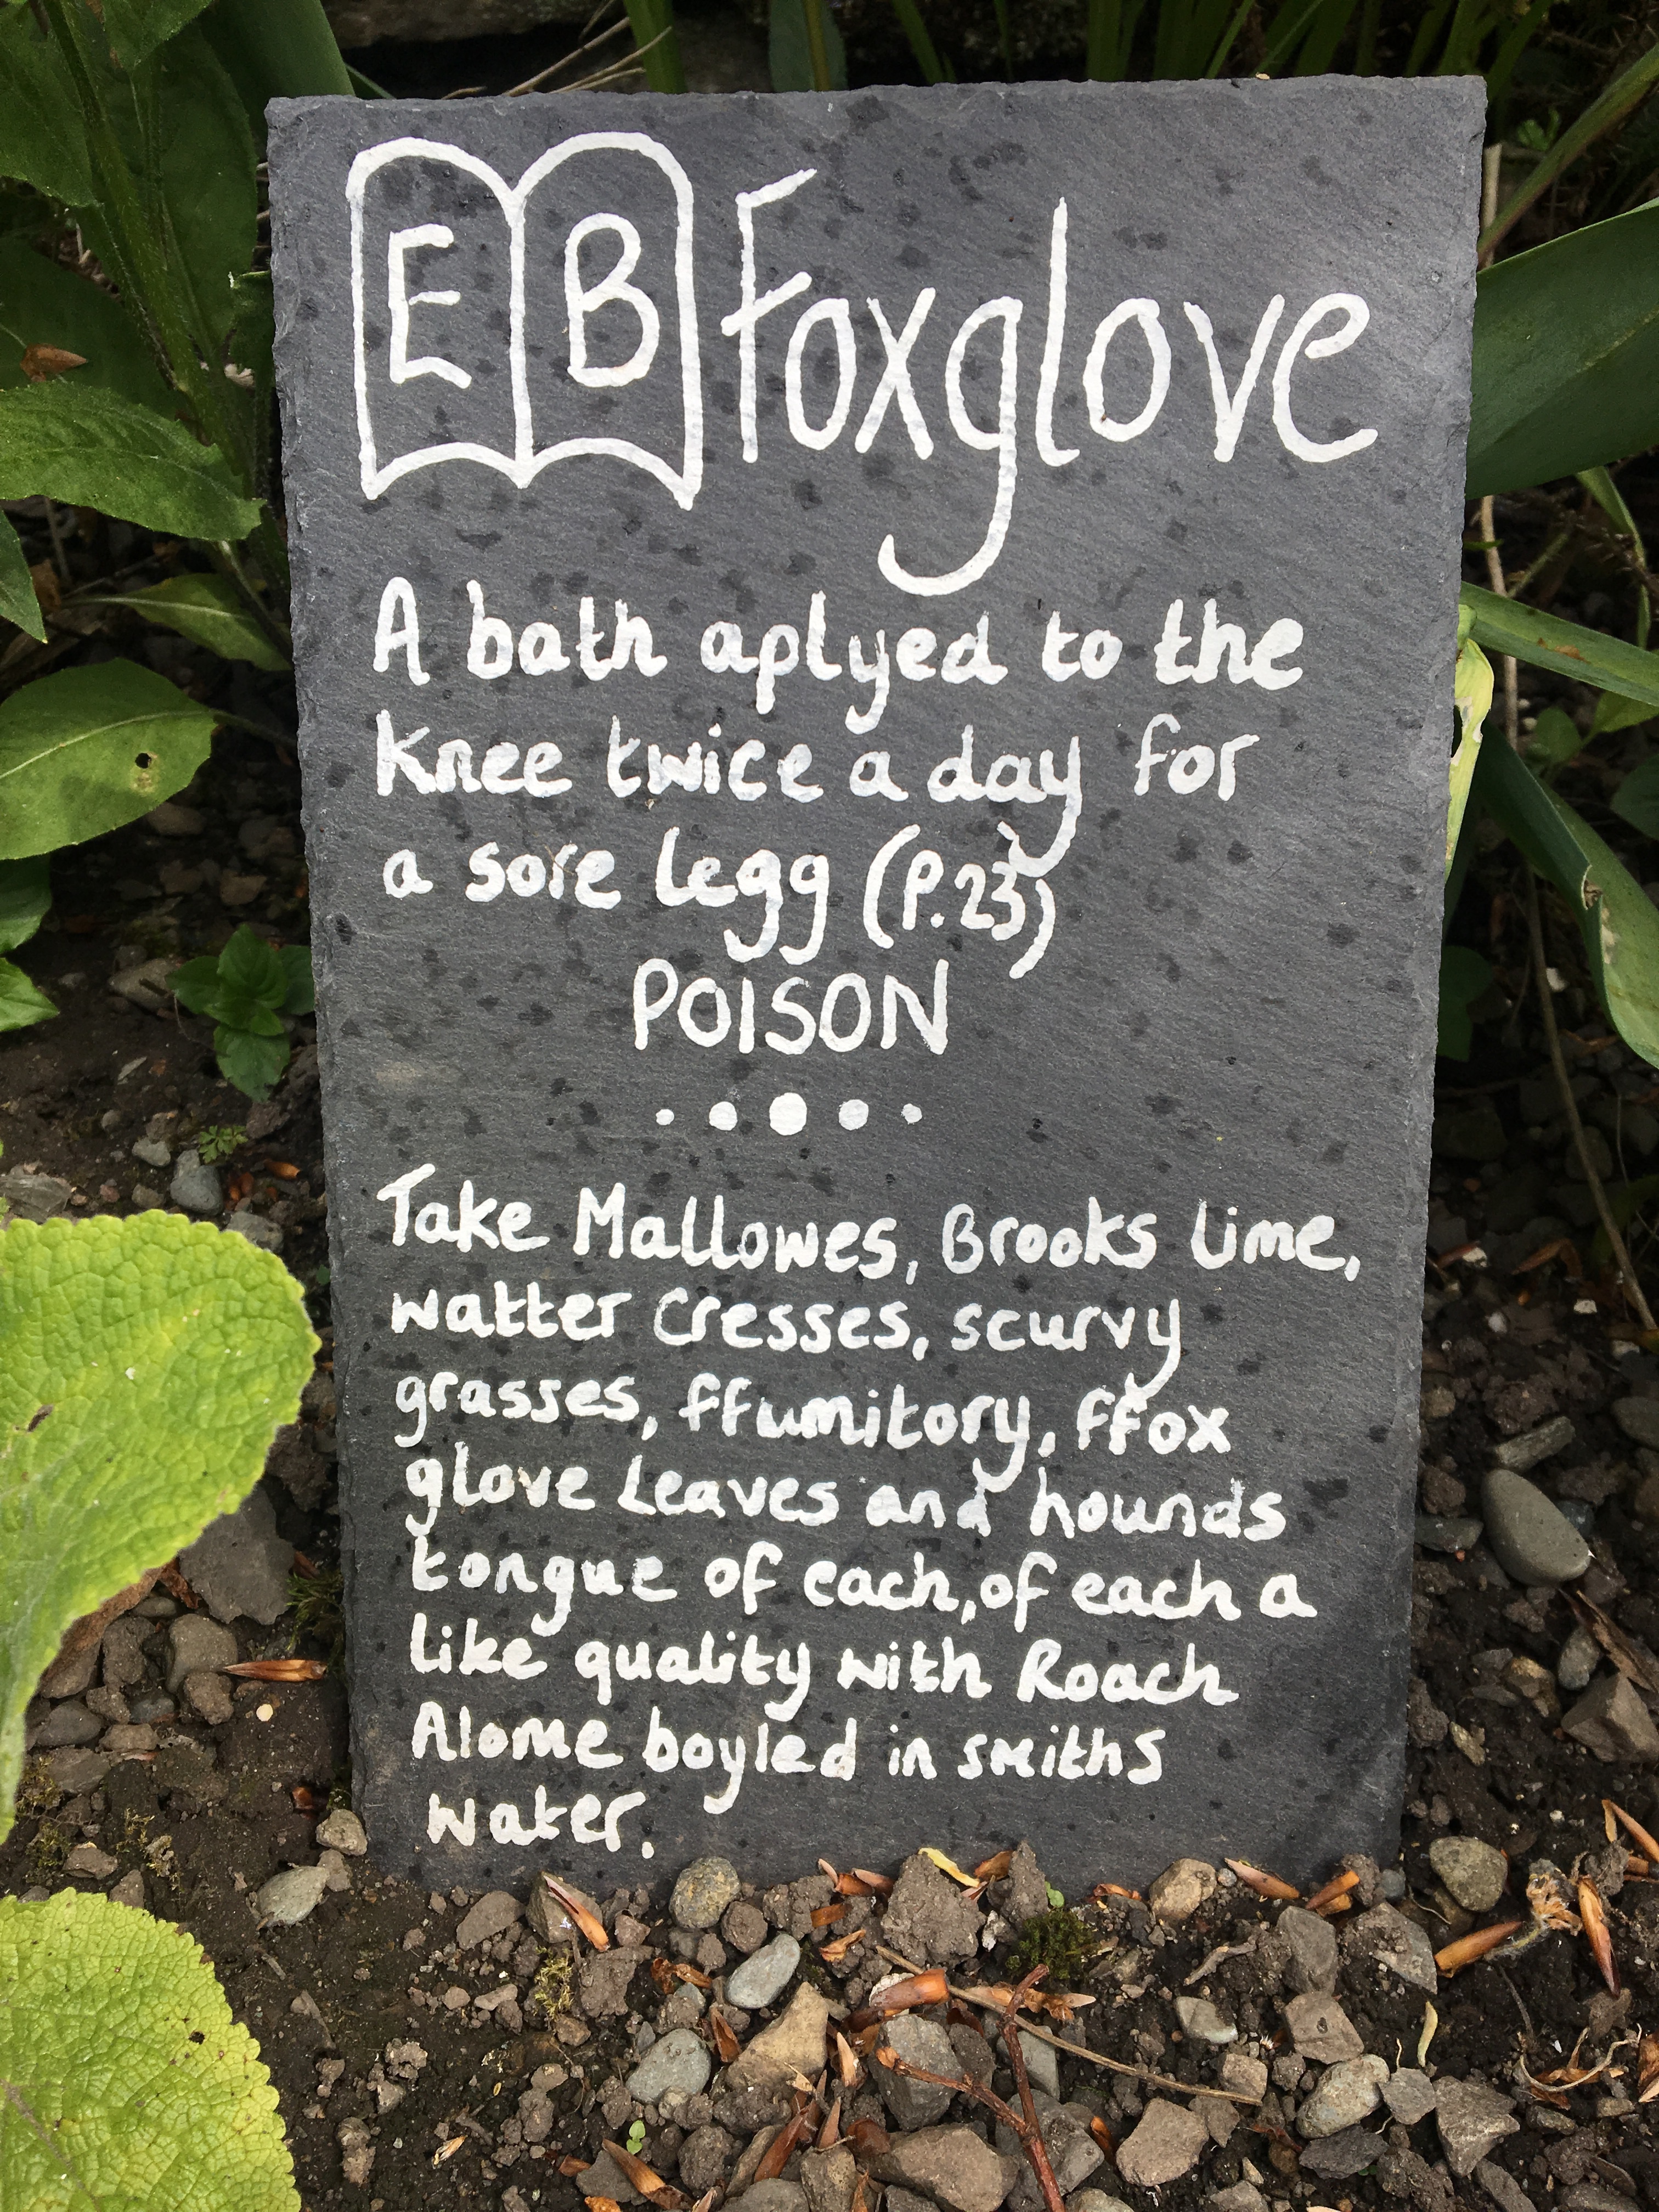 E B Foxglove
A bath aplyed to the
knee twice a day for
a sore legg (P.23)
POISON
Take Mallowes, Brooks Lime,
watter Cresses, scurvy
grasses, ffumitory, ffox
glove leaves and hounds
tongue of each, of each a
like quality with Roach
Alome boyled in smiths
water.